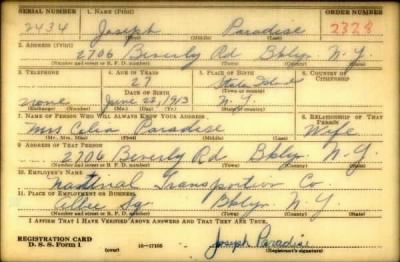 SERIAL NUMBER 1. NAME (Print) ORDER NUMBER
2434 Joseph Paradise 2328
(First) (Middle) (Last)
2. ADDRESS (Print)
2706 Beverly Rd Bklyn N.Y.
(Number and street or R. F. D. number) (Town) (County) (State)
3. TELEPHONE 4. AGE IN YEARS 5. PLACE OF BIRTH 6. COUNTRY OF CITIZENSHIP
27 Staten Island
DATE OF BIRTH (Town or county)
none June 23, 1913 N.Y.
(Exchange) (Number) (Mo.) (Day) (Yr.) (State or country)
7. NAME OF PERSON WHO WILL ALWAYS KNOW YOUR ADDRESS 8. RELATIONSHIP OF THAT PERSON
Mrs Celia Paradise Wife
(Mr., Mrs., Miss) (First) (Middle) (Last)
9. ADDRESS OF THAT PERSON
2706 Beverly Rd Bklyn N-Y.
(Number and street or R. F. D. number) (Town) (County) (State)
10. EMPLOYER'S NAME
National Transportation Co
11. PLACE OF EMPLOYMENT OR BUSINESS
Bklyn N.Y.
(Number and street or R. F. D. number) (Town) (County) (State)
I AFFIRM THAT I HAVE VERIFIED ABOVE ANSWERS AND THAT THEY ARE TRUE.
REGISTRATION CARD
D. S. S. Form 1 (over) 16—17105 Joseph Paradise
(Registrant's signature)